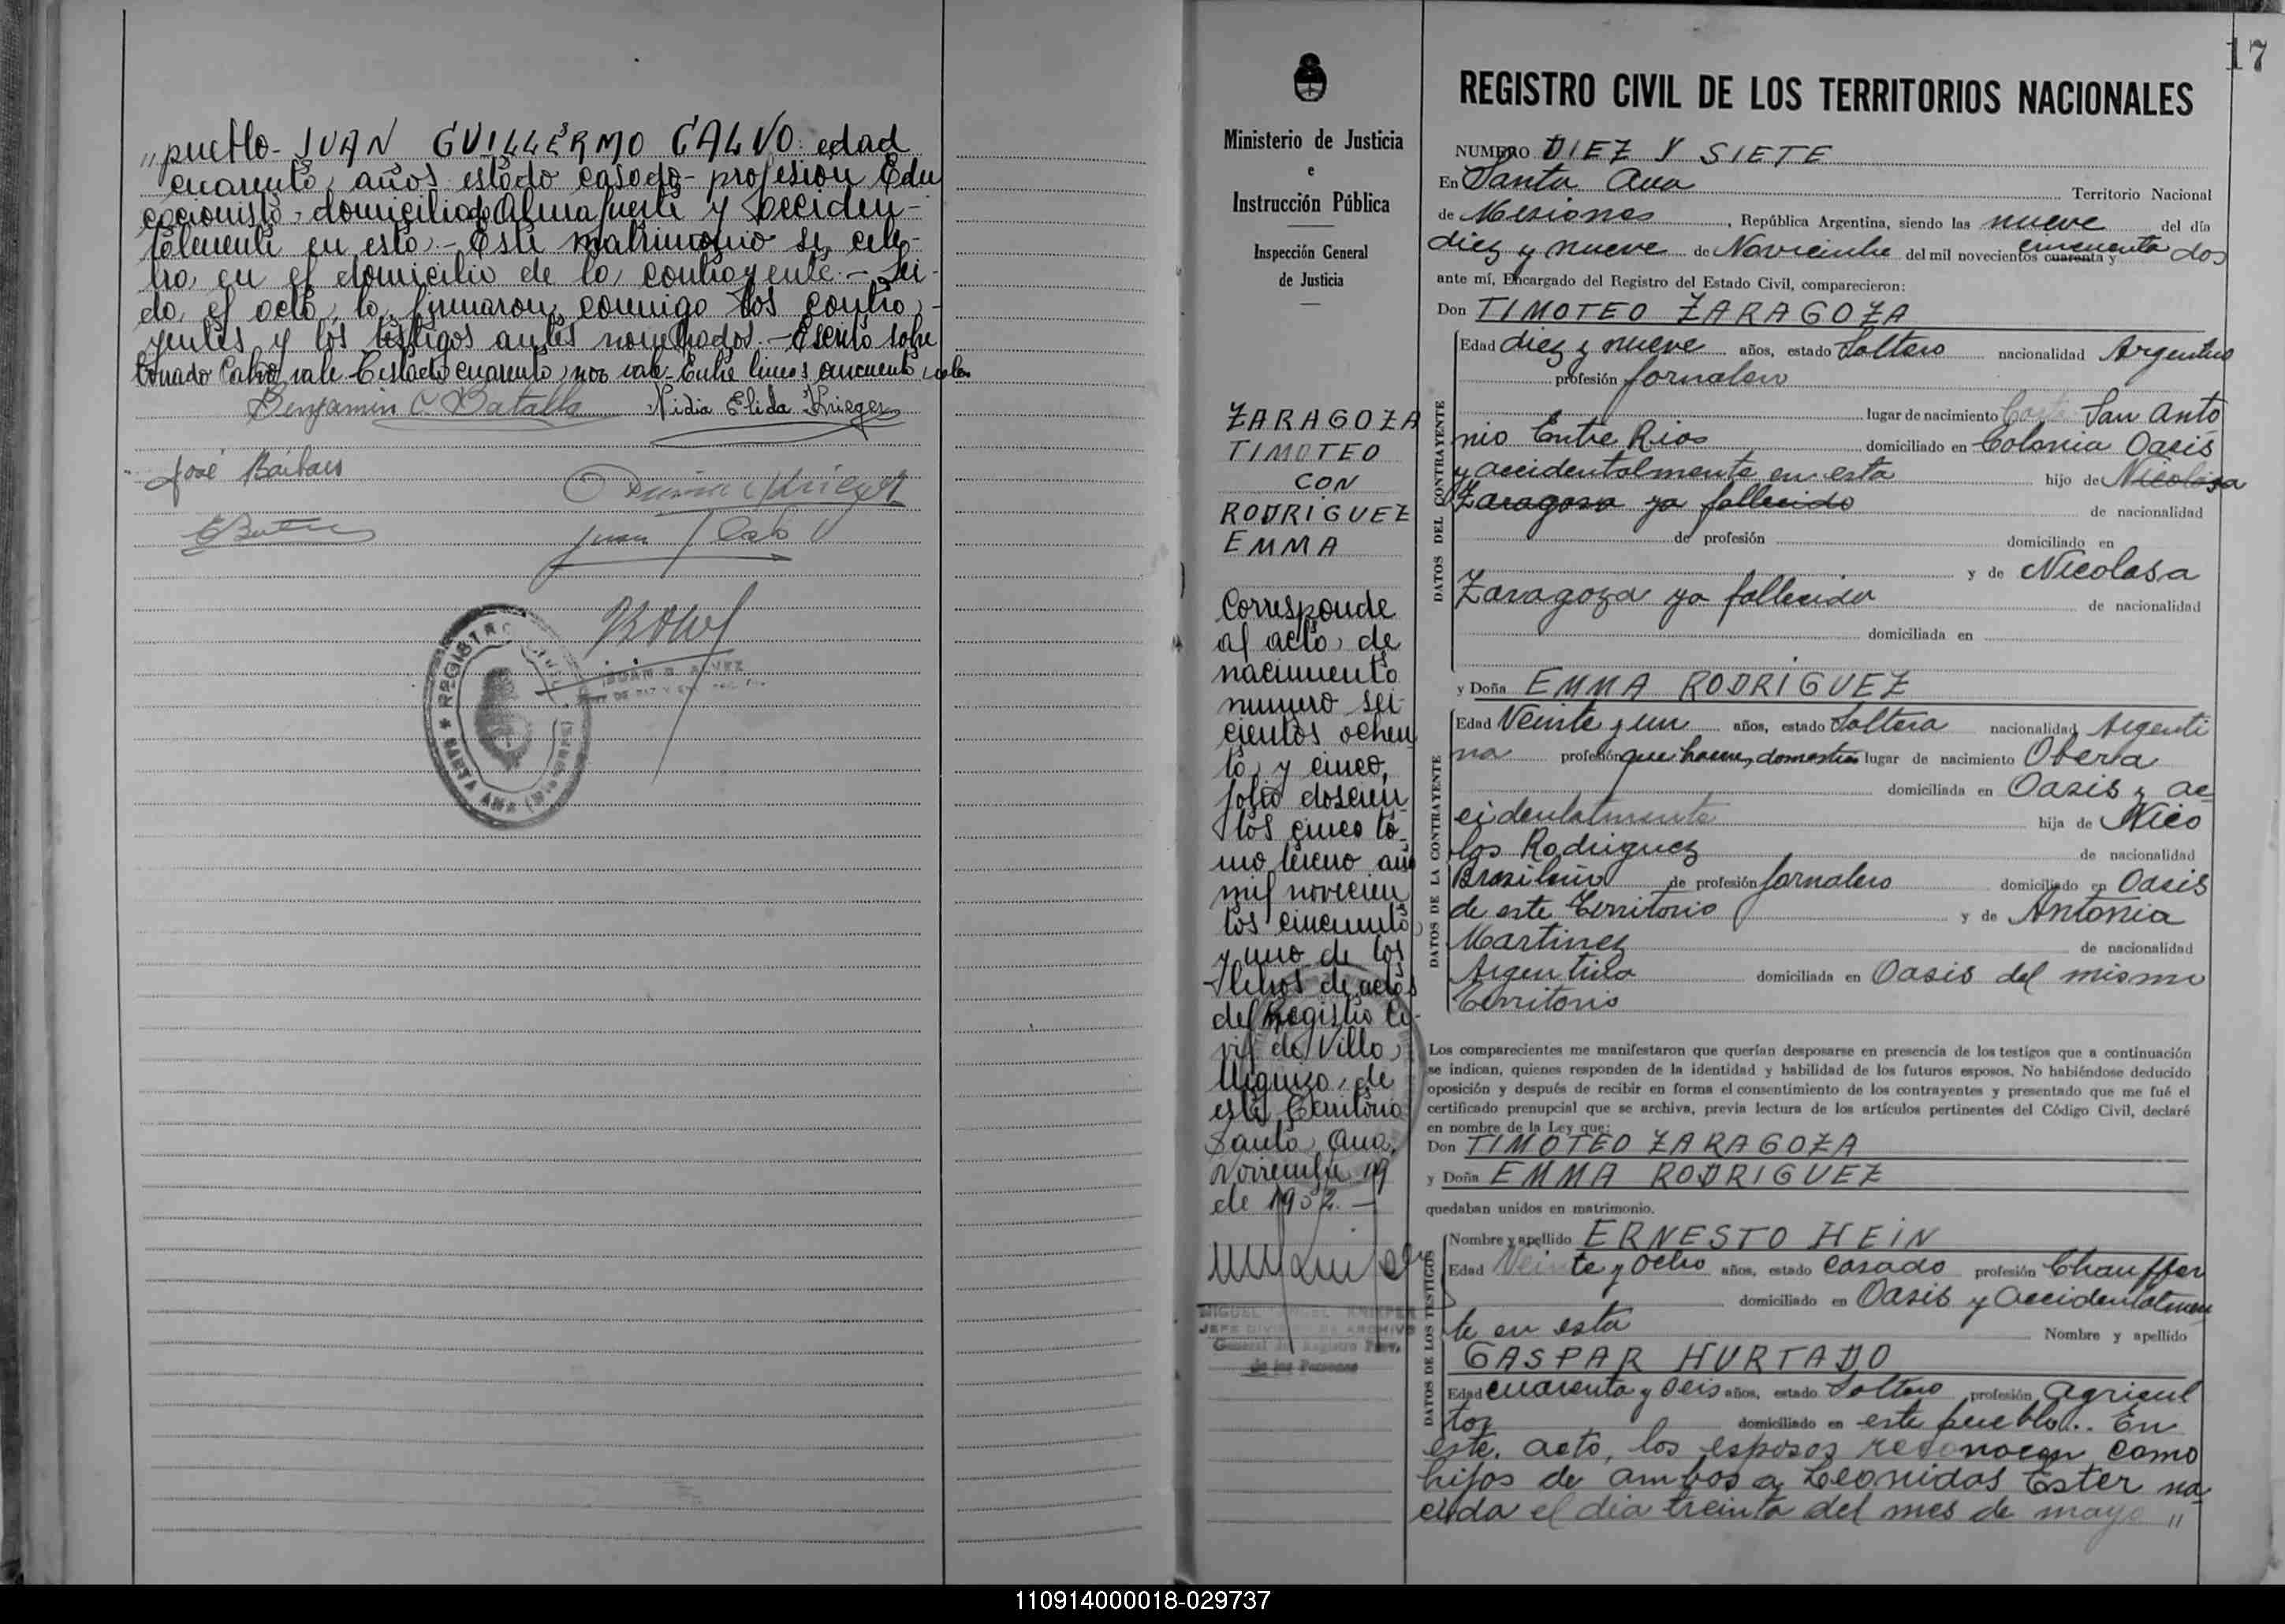 „ pueblo - JUAN GUILLERMO CALVO. edad
cuarenta, años estado casado - profesión Edu
cacionista - domiciliado Almafuerte y acciden-
talmente en esta. - Este matrimonio se cele-
bra en el domicilio de la contrayente. - Lei-
da, el acta, la firmaron conmigo los contra-
yentes y los testigos antes nombrados. - Escrito sobre
borrado Calvo vale. Testado cuarenta, no vale - Entre lineas cincuenta, vale
Benjamin C. Batalla Nidia Elida Krieger
José Bárbaro
Krieger
Juan
REGISTRO CIVIL
SANTA ANA (Misiones)
JUAN B. ALVEZ
17
Ministerio de Justicia
e
Instrucción Pública
Inspección General
de Justicia
ZARAGOZA
TIMOTEO
CON
RODRIGUEZ
EMMA
Corresponde
al acta, de
nacimiento
numero sei-
cientos ochen
ta, y cinco,
folio doscien
tos cinco to-
mo tercero año
mil novecien
tos cincuenta
y uno de los
libros de actas
del Registro Ci-
vil de Villa
Urquiza, de
este Territorio
Santa Ana,
Noviembre 19
de 1952. -
MIGUEL ANGEL KNIEPER
JEFE DIVISION DE ARCHIVO
General del Registro Prov.
de las Personas
REGISTRO CIVIL DE LOS TERRITORIOS NACIONALES
NUMERO DIEZ Y SIETE
En Santa Ana Territorio Nacional
de Misiones, República Argentina, siendo las nueve del día
diez y nueve de Noviembre del mil novecientos cuarenta y cincuenta dos
ante mí, Encargado del Registro del Estado Civil, comparecieron:
Don TIMOTEO ZARAGOZA
DATOS DEL CONTRAYENTE
Edad diez y nueve años, estado Soltero nacionalidad Argentino
profesión Jornalero
lugar de nacimiento Costa San Anto
nio Entre Rios domiciliado en Colonia Oasis
y accidentalmente en esta hijo de Nicolasa
Zaragoza ya fallecido de nacionalidad
de profesión domiciliado en
y de Nicolasa
Zaragoza ya fallecida de nacionalidad
domiciliada en
y Doña EMMA RODRIGUEZ
DATOS DE LA CONTRAYENTE
Edad Veinte y un años, estado Soltera nacionalidad Argenti
na profesión que hacer, domestica lugar de nacimiento Obera
domiciliada en Oasis y ac
cidentalmente hija de Nico
los Rodriguez de nacionalidad
Brasileño de profesión Jornalero domiciliado en Oasis
de este Territorio y de Antonia
Martinez de nacionalidad
Argentina domiciliada en Oasis del mismo
Territorio
Los comparecientes me manifestaron que querían desposarse en presencia de los testigos que a continuación
se indican, quienes responden de la identidad y habilidad de los futuros esposos. No habiéndose deducido
oposición y después de recibir en forma el consentimiento de los contrayentes y presentado que me fué el
certificado prenupcial que se archiva, previa lectura de los artículos pertinentes del Código Civil, declaré
en nombre de la Ley que:
Don TIMOTEO ZARAGOZA
y Doña EMMA RODRIGUEZ
quedaban unidos en matrimonio.
DATOS DE LOS TESTIGOS
Nombre y apellido ERNESTO HEIN
Edad Veinte y ocho años, estado casado profesión Chauffer
domiciliado en Oasis y accidentalmen
te en esta Nombre y apellido
GASPAR HURTADO
Edad cuarenta y seis años, estado Soltero profesión Agricul
tor domiciliado en este pueblo.. En
este acto, los esposos reconocen como
hijos de ambos a Leonidas Ester na
cida el día treinta del mes de mayo „
110914000018-029737